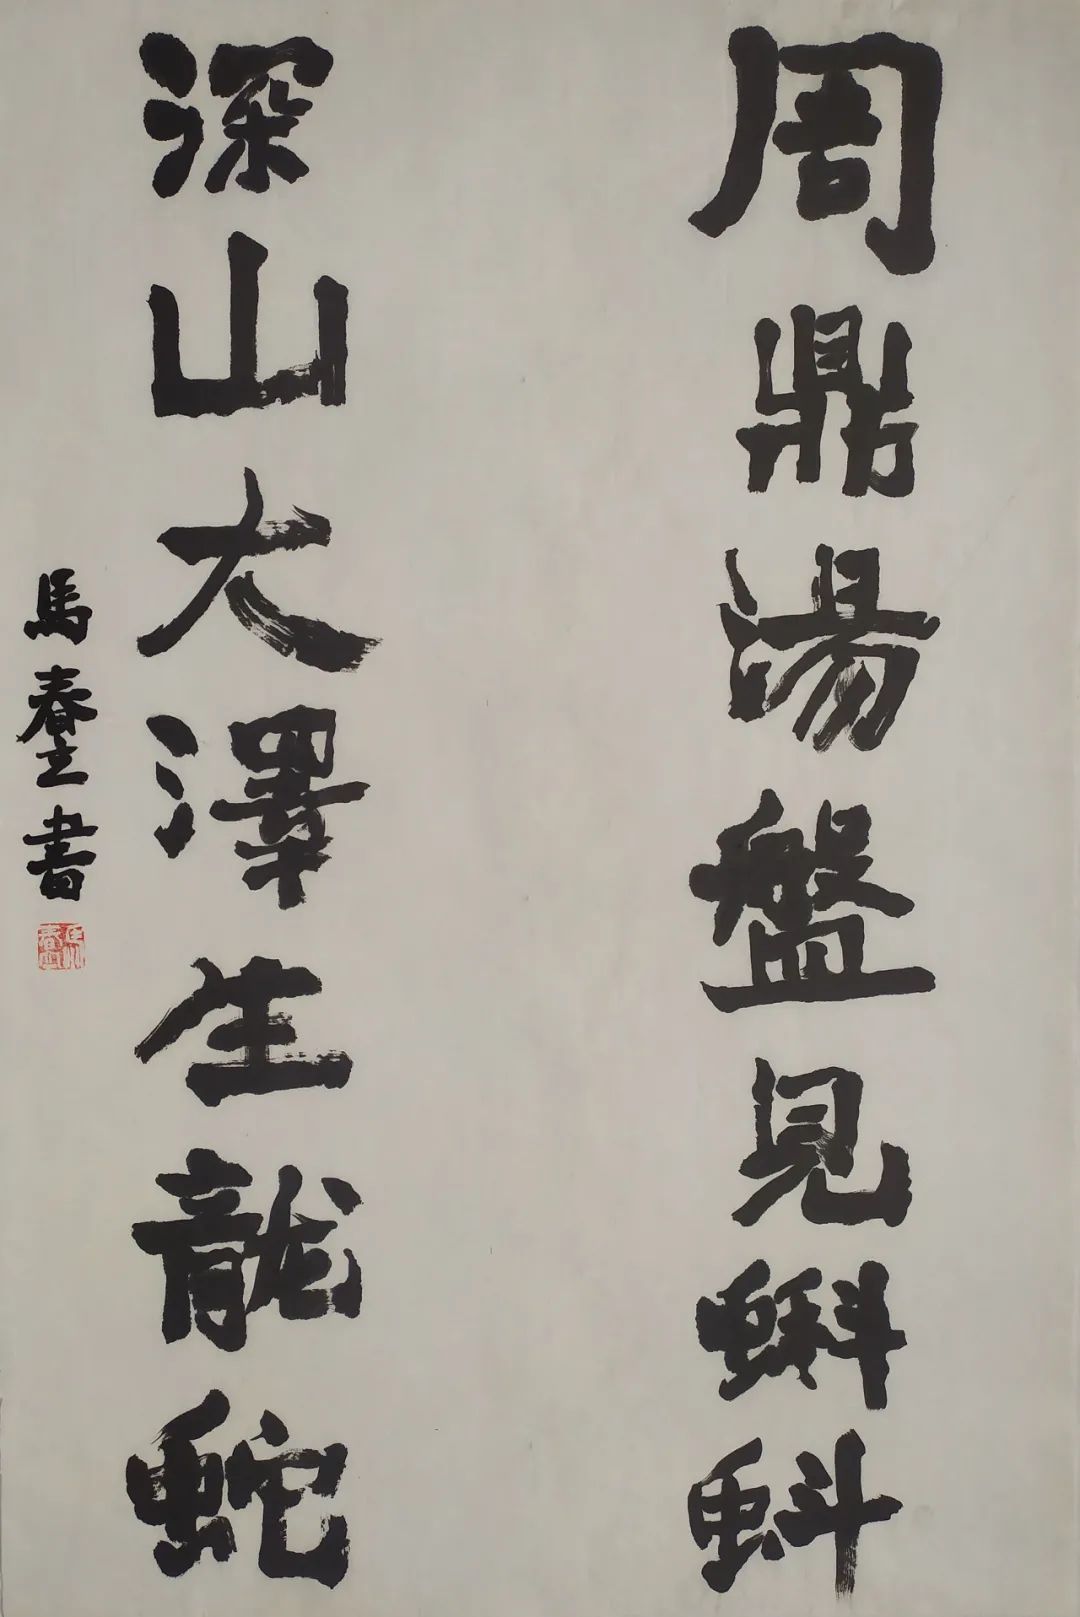 周鼎湯盤見蝌蚪
深山大澤生龍蛇
馬春書